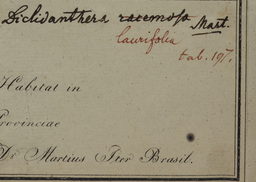 Diclidanthera racemosa Mart.
laurifolia
tab. 197.
Habitat in
Provinciae
Dr Martius Iter Brasil.